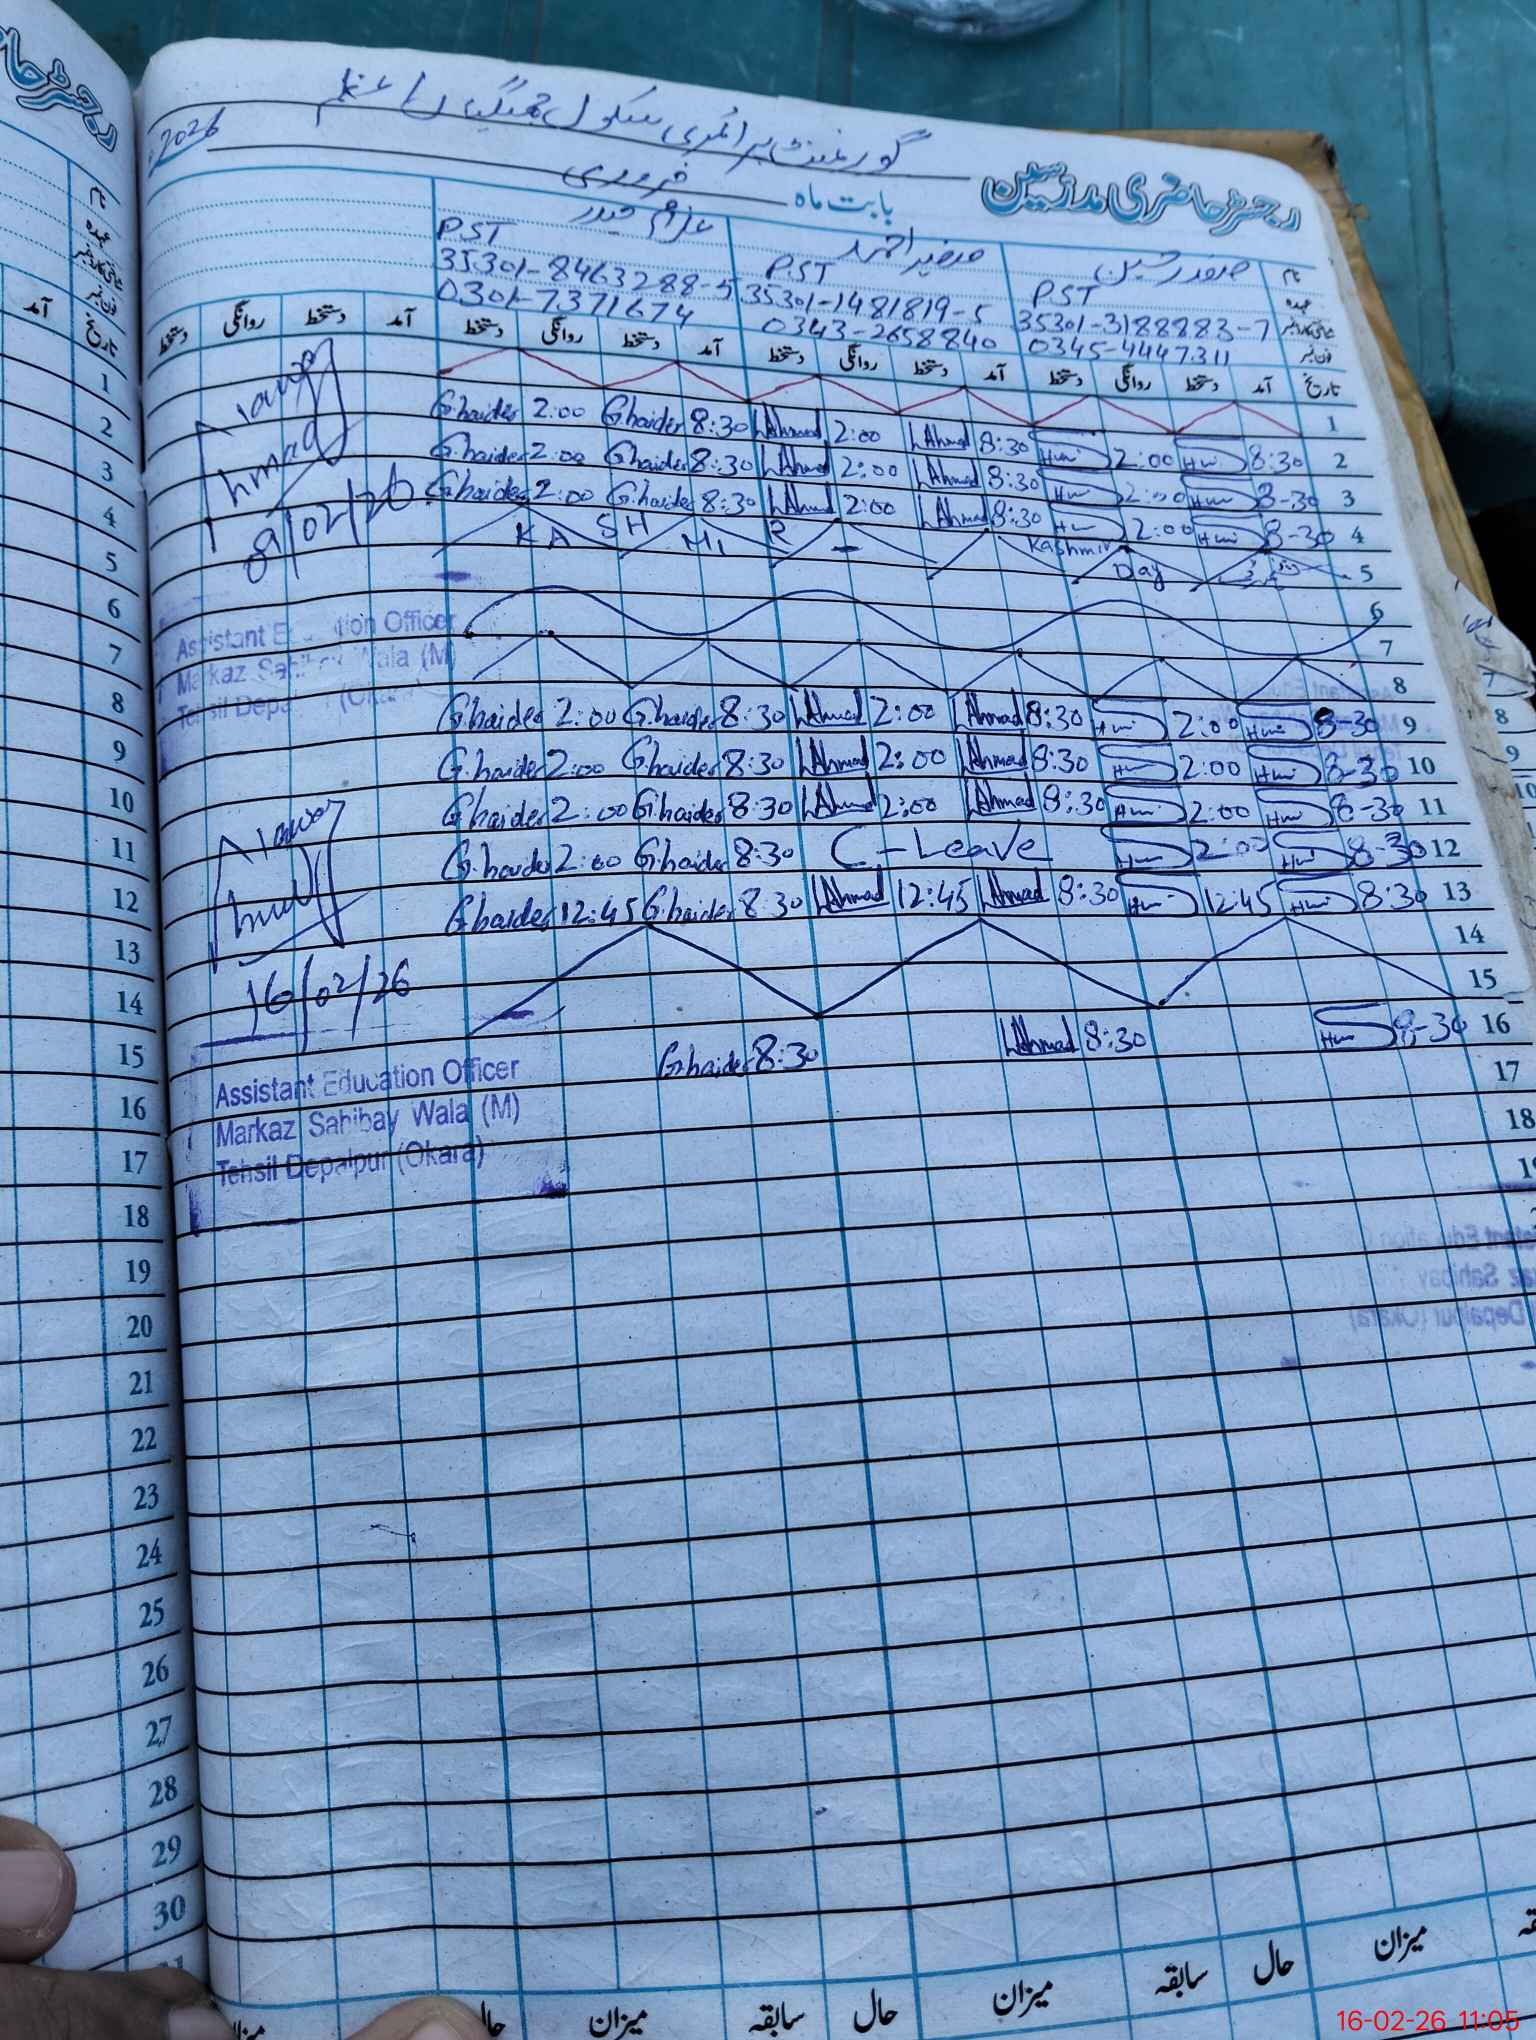 رجسٹر حاضری مدرسین
گورنمنٹ پرائمری سکول
بابت ماہ فروری 2026
نام صفدر حسین صغیر احمد غلام حیدر
عہدہ PST PST PST
35301-3188883-7 35301-1481819-5 35301-8463288-5
فون نمبر 0345-4447311 0343-2658840 0301-7371674
تاریخ آمد دستخط روانگی دستخط آمد دستخط روانگی دستخط آمد دستخط روانگی دستخط آمد دستخط روانگی دستخط
1
G.haider 2:00 G.haider 8:30 Ahmad 2:00 Ahmad 8:30 2:00 8:30 2
G.haider 2:00 G.haider 8:30 Ahmad 2:00 Ahmad 8:30 2:00 8-30 3
G.haider 2:00 G.haider 8:30 Ahmad 2:00 Ahmad 8:30 2:00 8-30 4
KA SH MI R Kashmir Day 5
6
7
8
G.haider 2:00 G.haider 8:30 Ahmad 2:00 Ahmad 8:30 2:00 8-30 9
G.haider 2:00 G.haider 8:30 Ahmad 2:00 Ahmad 8:30 2:00 8-30 10
G.haider 2:00 G.haider 8:30 Ahmad 2:00 Ahmad 8:30 2:00 8-30 11
G.haider 2:00 G.haider 8:30 C-Leave 2:00 8-30 12
G.haider 12:45 G.haider 8:30 Ahmad 12:45 Ahmad 8:30 12:45 8:30 13
14
15
G.haider 8:30 Ahmad 8:30 8-30 16
17
18
09/02/26
Assistant Education Officer
Markaz Sahibay Wala (M)
Tehsil Depalpur (Okara)
16/02/26
Assistant Education Officer
Markaz Sahibay Wala (M)
Tehsil Depalpur (Okara)
میزان حال سابقہ میزان حال سابقہ میزان حال
نام
عہدہ
فون نمبر
آمد تاریخ
1
2
3
4
5
6
7
8
9
10
11
12
13
14
15
16
17
18
19
20
21
22
23
24
25
26
27
28
29
30
16-02-26 11:05